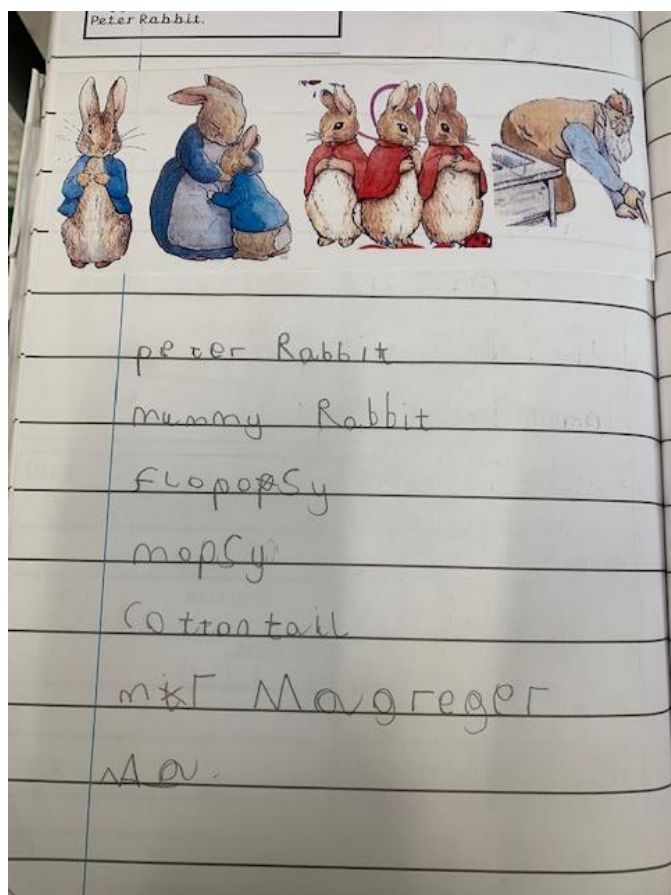 Peter Rabbit.
peter Rabbit
mummy Rabbit
Flopopsy
mopsy
Cottontail
mr Magreger
Ma.